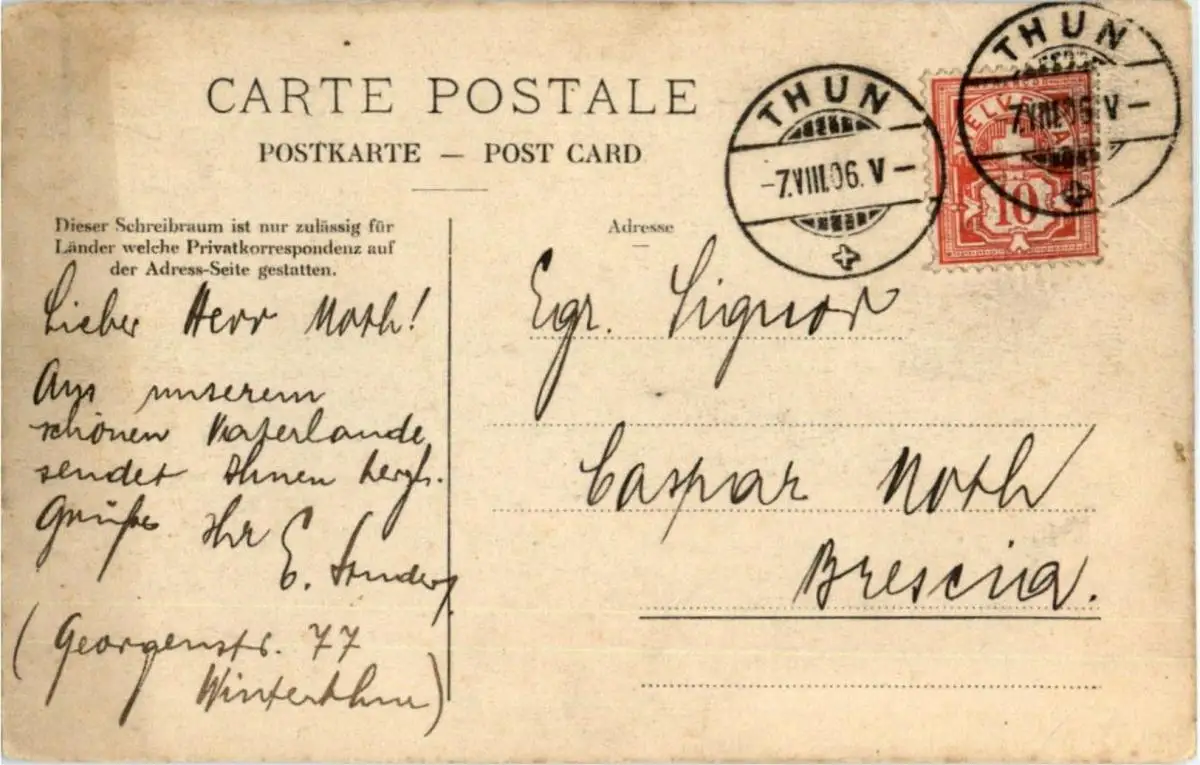 CARTE POSTALE
POSTKARTE — POST CARD
Dieser Schreibraum ist nur zulässig für
Länder welche Privatkorrespondenz auf
der Adress-Seite gestatten.
Lieber Herr Noth!
Aus unserem
schönen Vaterlande
sendet Ihnen herzl.
Grüße Ihr
E.
(Georgenstr. 77
Winterthur)
Adresse
Egr. Signor
Caspar Noth
Brescia.
THUN
-7.VIII.06. V-
THUN
7.VIII.06. V-
HELVETIA
10